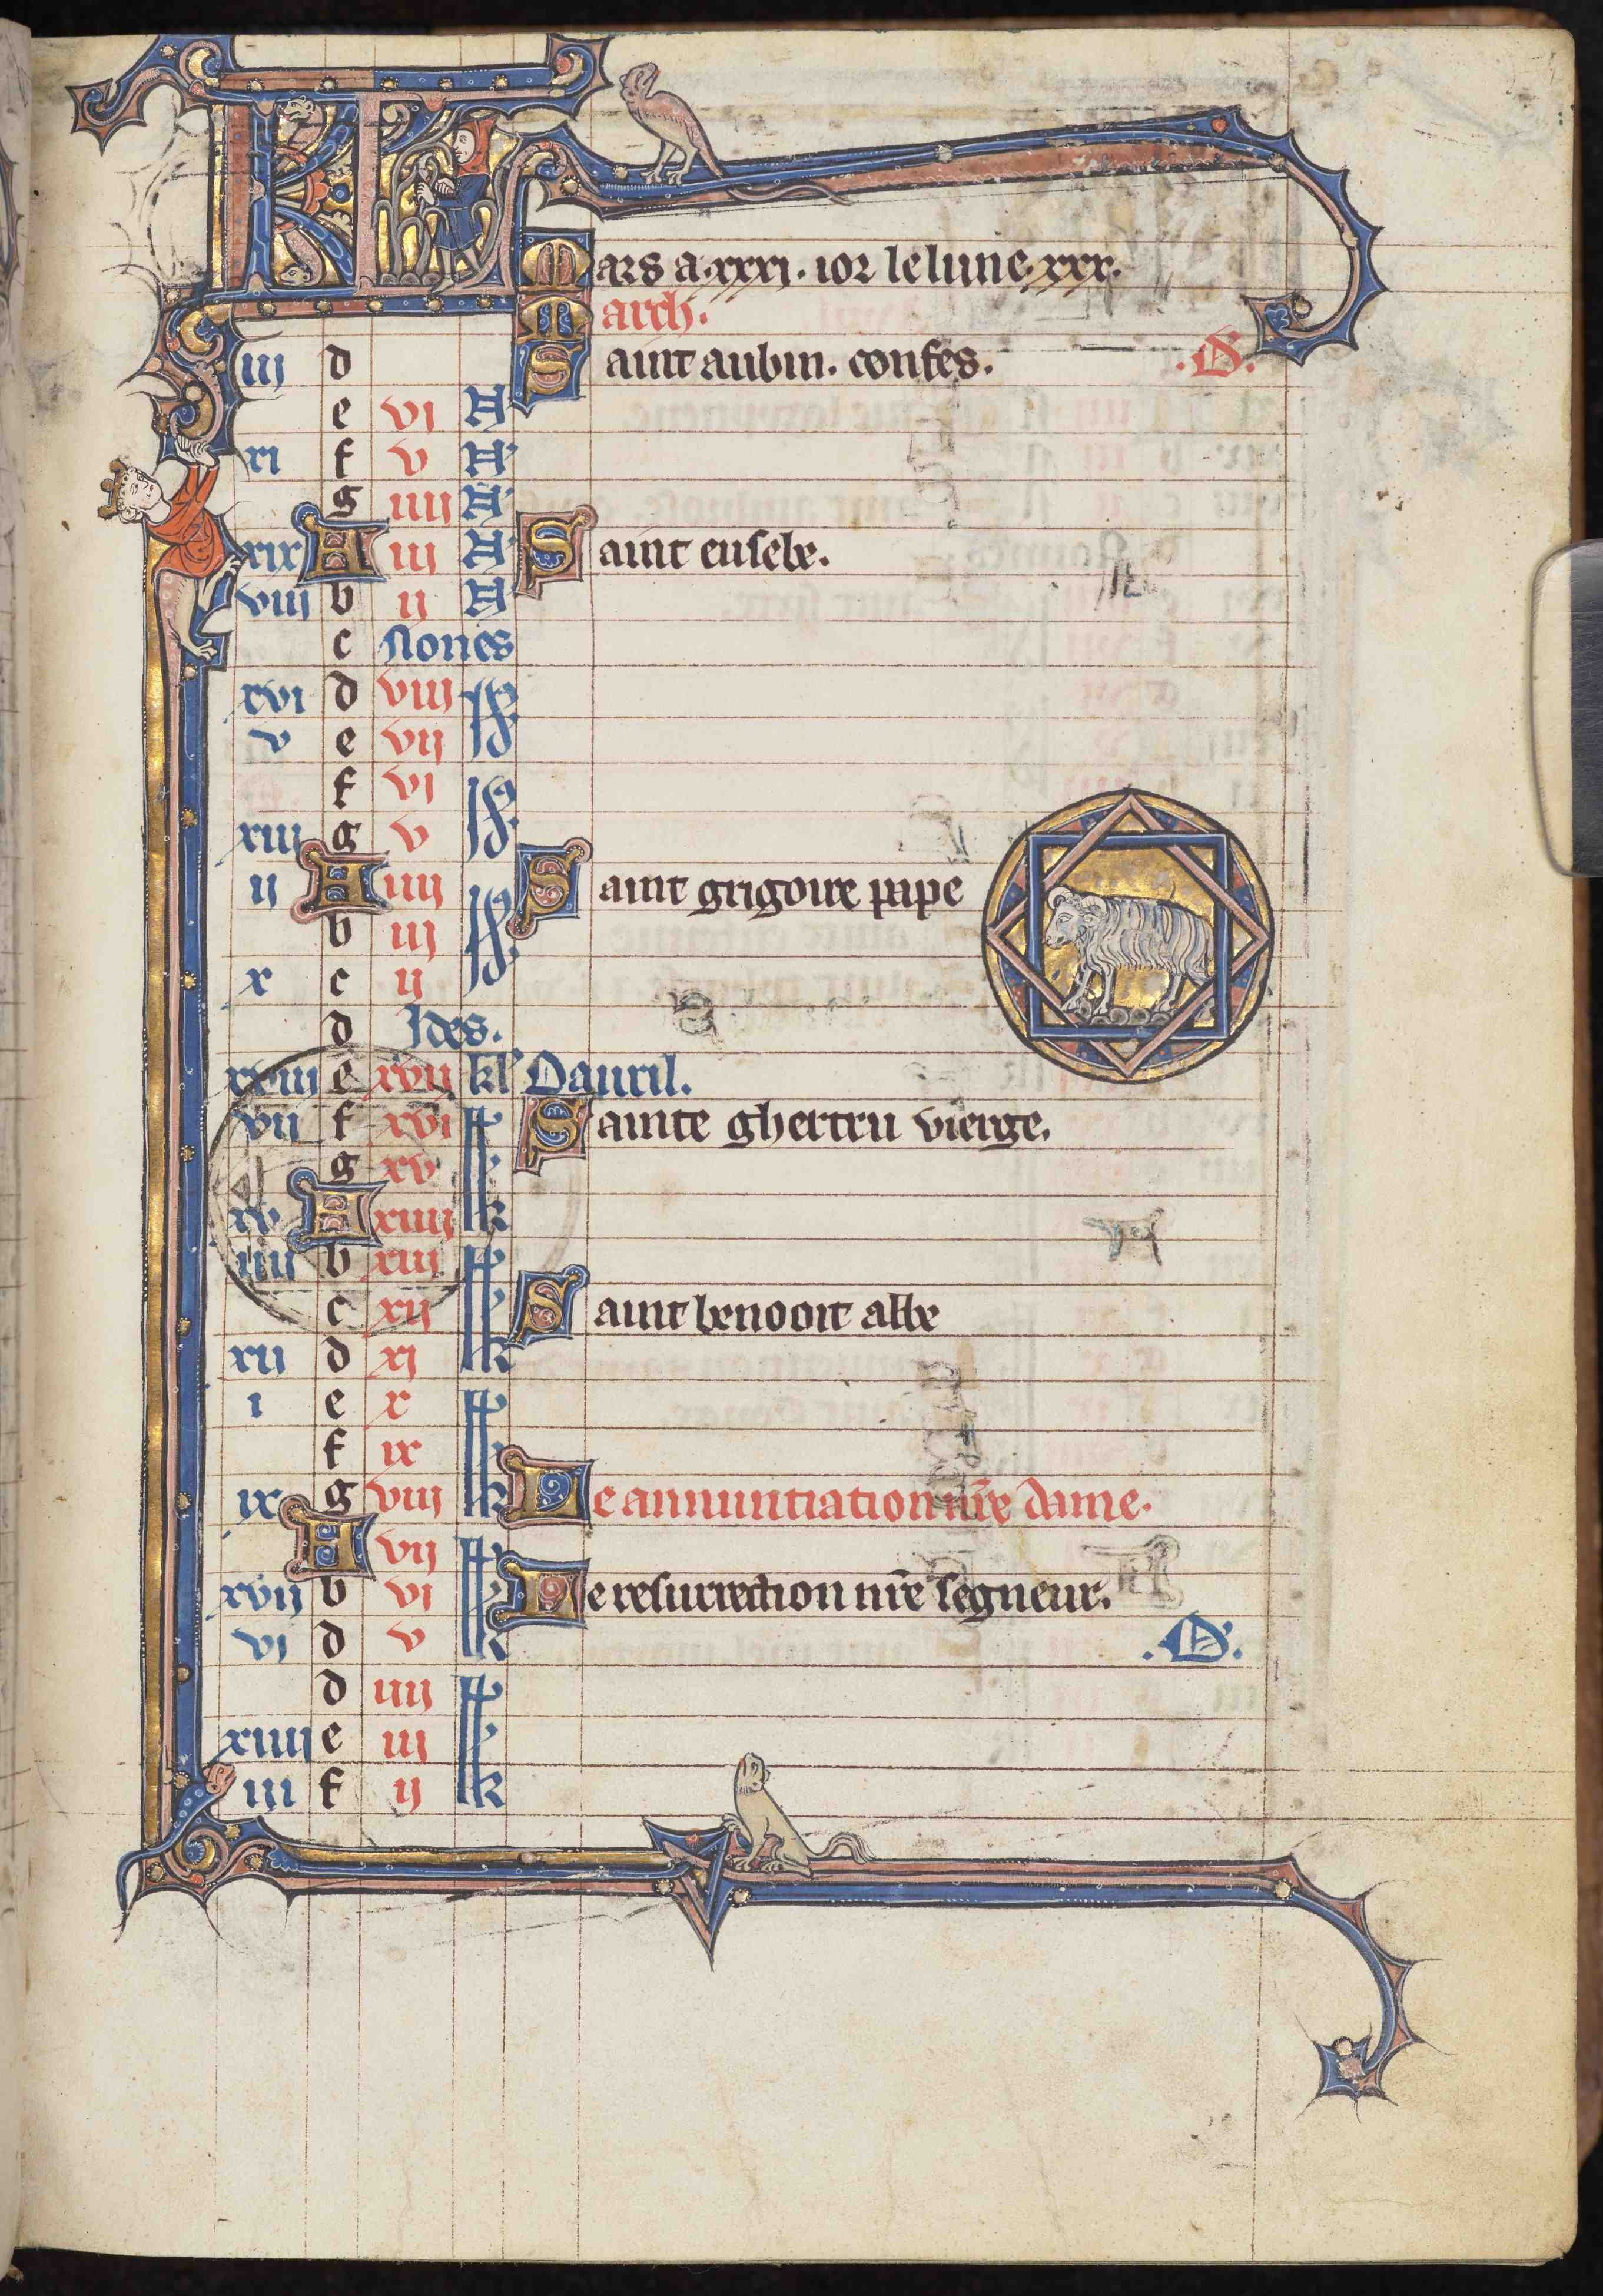 KL Mars a .xxxi. ior le lune .xxx.
March.
iii d Saint aubin. confes. .S.
e vi N
xi f v N
g iiii N
xix A iii N Saint eusebe.
viii b ii N
c Nones
xvi d viii
v e vii Id
f vi
xiii g v Id
ii A iiii Saint grigoire pape
b iii
x c ii Id
d Ides.
xviii e xvii kl' Dauril.
vii f xvi Sainte ghertru vierge.
g xv
xv A xiiii k
iiii b xiii
c xii Saint benooit abbe
xii d xi k
i e x
f ix
ix g viii k Le annuntiation nr̃e dame.
A vii
xvii b vi Le resurrection nr̃e segneur.
vi d v k .D.
d iiii
xiiii e iii
iii f ii k